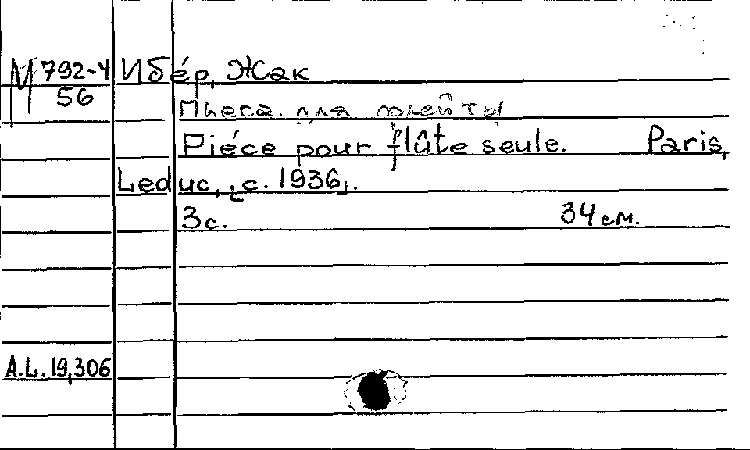 М 792-4 Ибе́р, Жак
56
Пьеса для флейты
Piéce pour flûte seule. Paris,
Leduc, [c. 1936].
3с. 34 см.
A.L. 19,306